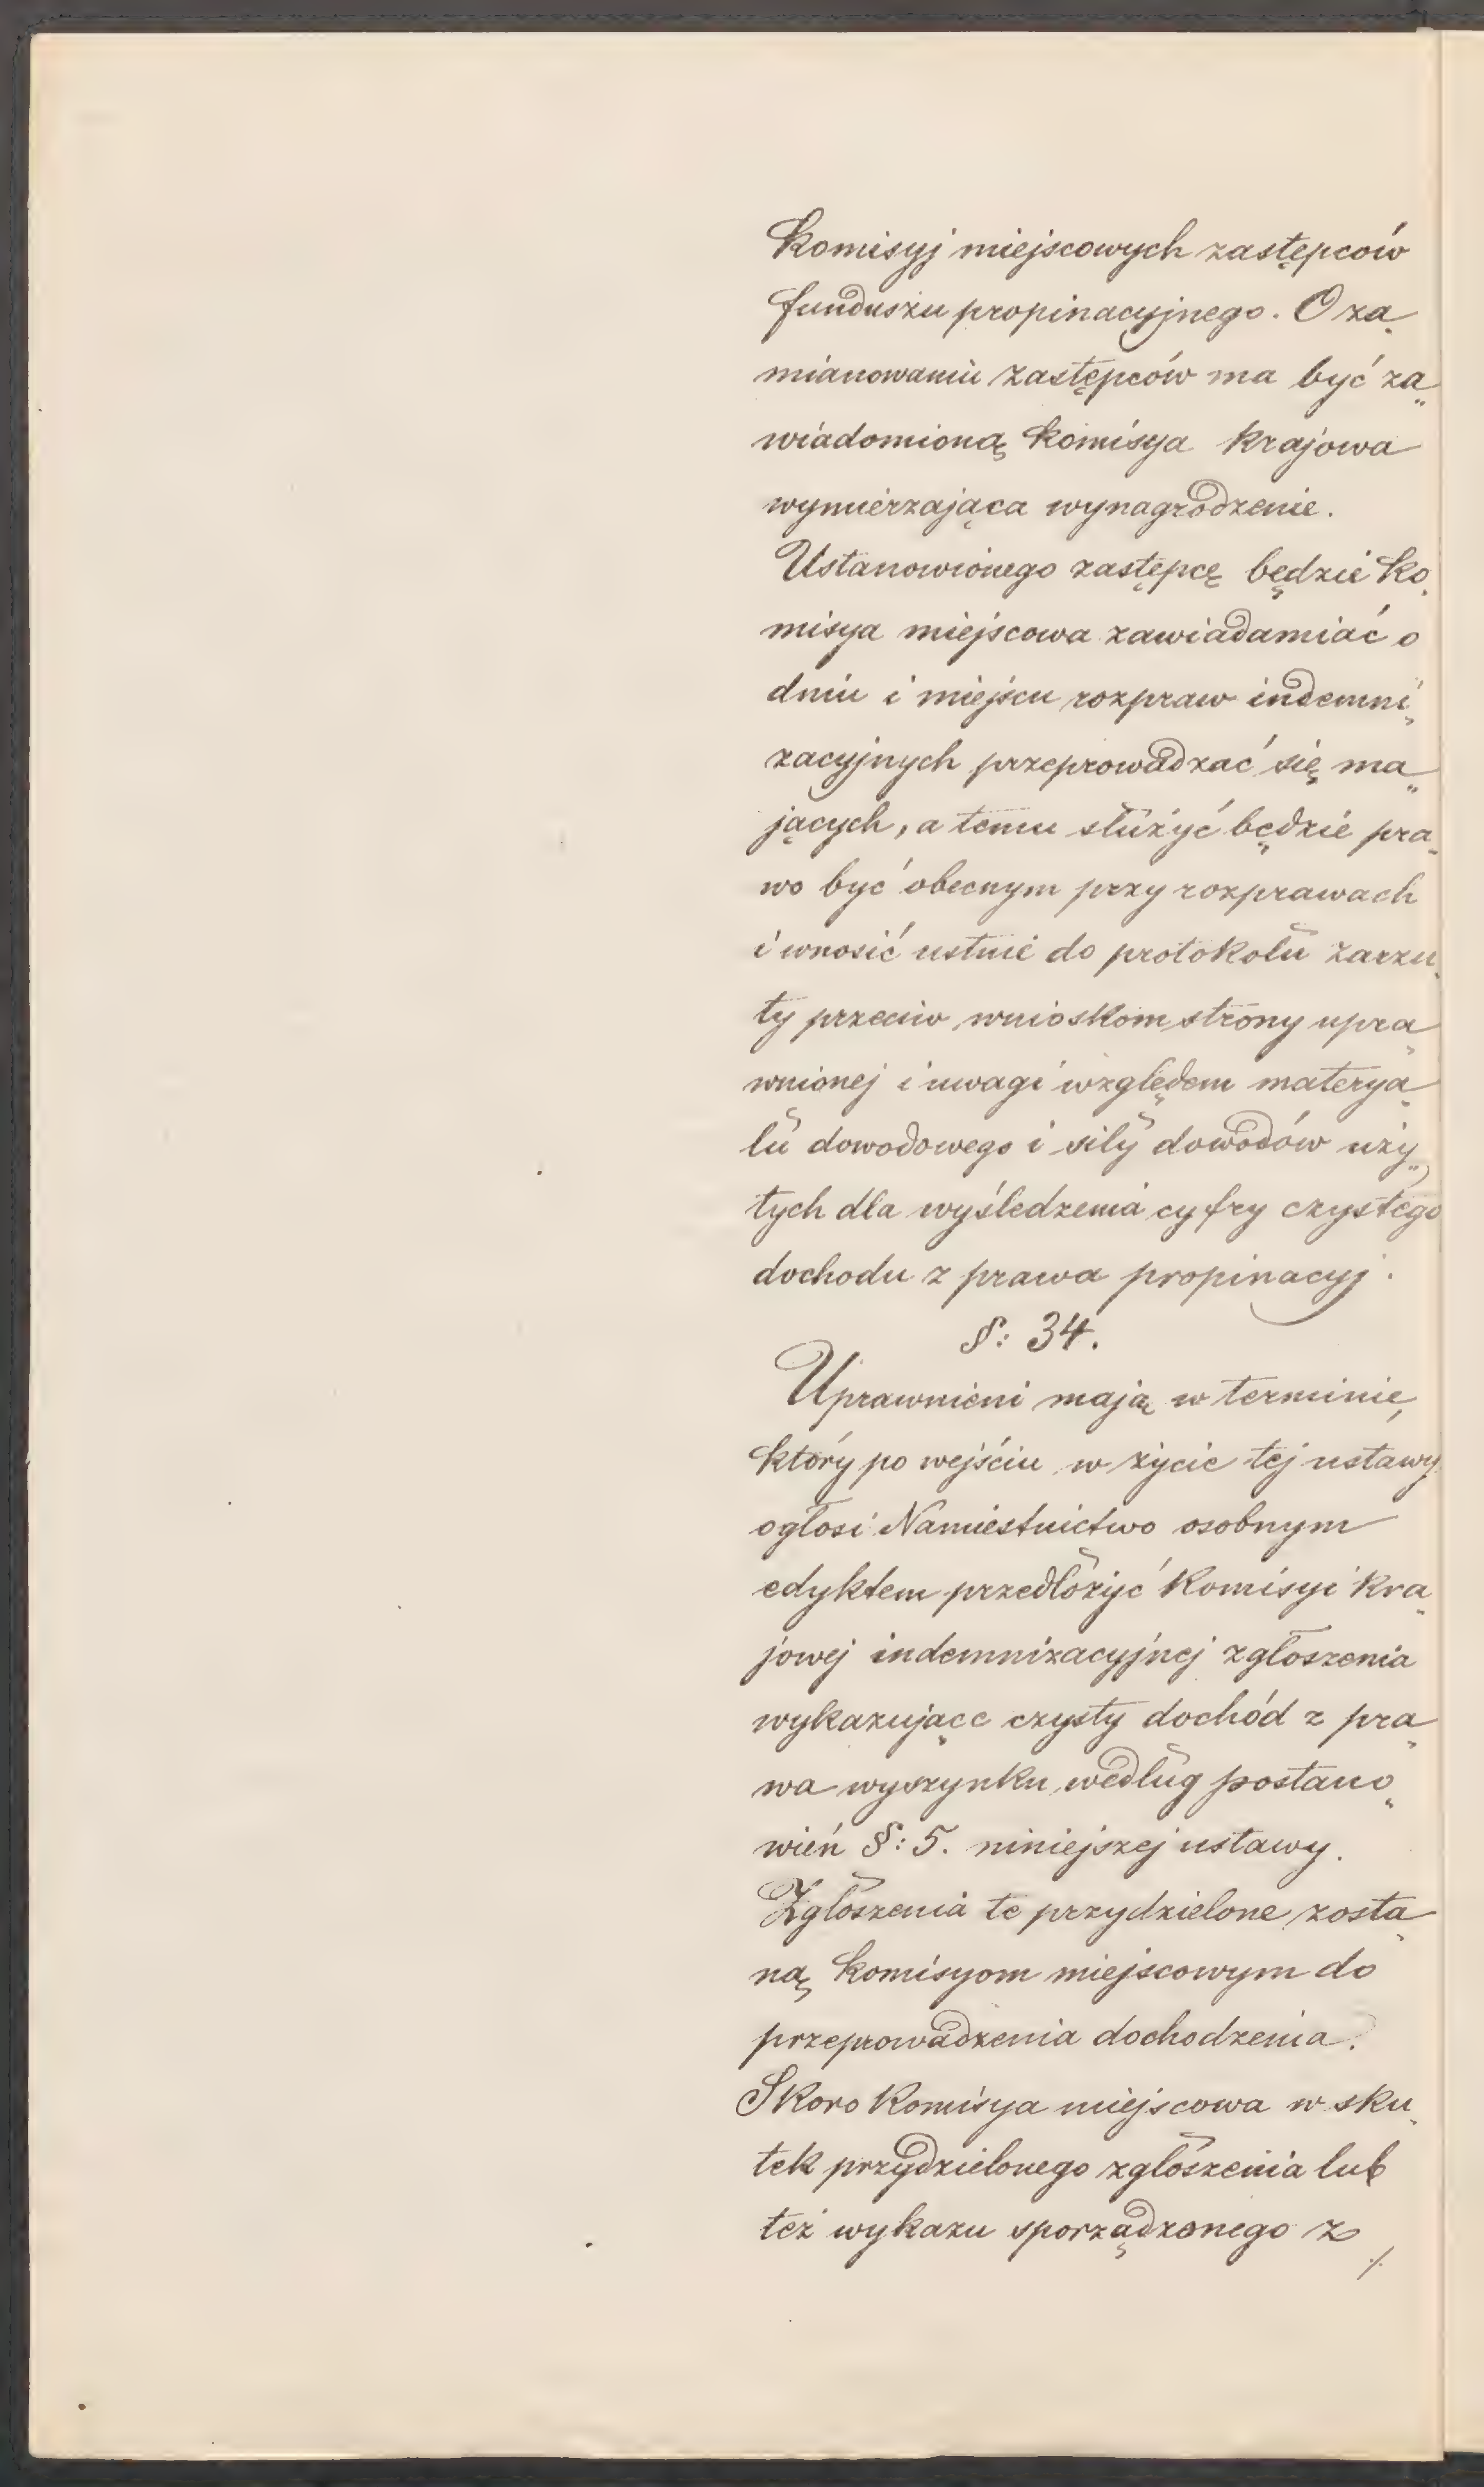 Komisyj miejscowych zastępców
funduszu propinacyjnego. O za„
mianowaniu zastępców ma być za„
wiadomioną Komisya Krajowa
wymierzająca wynagrodzenie.
Ustanowionego zastępcę będzie Ko„
misya miejscowa zawiadamiać o
dniu i miejscu rozpraw indemni„
zacyjnych przeprowadzać się ma„
jących, a temu służyć będzie pra„
wo być obecnym przy rozprawach
i wnosić ustnie do protokołu zarzu„
ty przeciw wnioskom strony upra„
wnionej i uwagi względem materya„
łu dowodowego i siły dowodów uży„
tych dla wyśledzenia cyfry czystego
dochodu z prawa propinacyj.
§: 34.
Uprawnieni mają w terminie,
który po wejściu w życie tej ustawy
ogłosi Namiestnictwo osobnym
edyktem przedłożyć Komisyi Kra„
jowej indemnizacyjnej zgłoszenia
wykazujące czysty dochód z pra„
wa wyszynku według postano„
wień §: 5. niniejszej ustawy.
Zgłoszenia te przydzielone zosta„
ną Komisyom miejscowym do
przeprowadzenia dochodzenia.
Skoro Komisya miejscowa w sku„
tek przydzielonego zgłoszenia lub
też wykazu sporządzonego z
./.